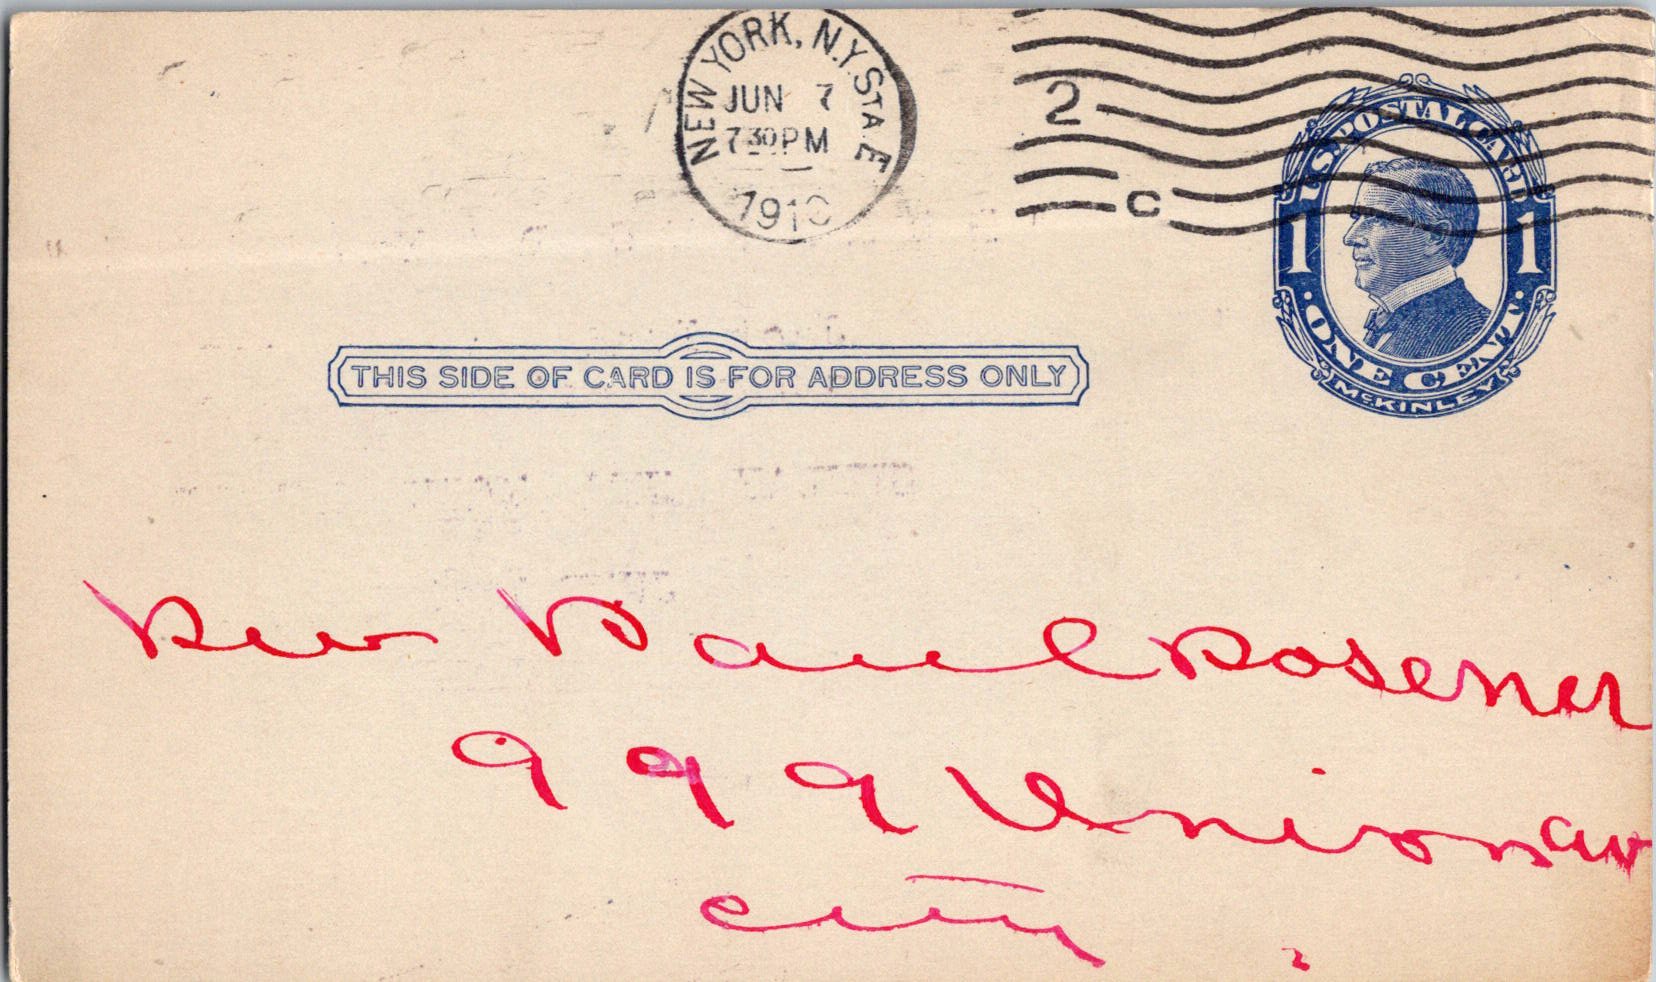 NEW YORK, N.Y. STA. E
JUN 7
7 30 PM
1910
2
C
U.S. POSTAL CARD
1 1
ONE CENT
McKINLEY
THIS SIDE OF CARD IS FOR ADDRESS ONLY
Rev Paul Rosener
999 Union av
City